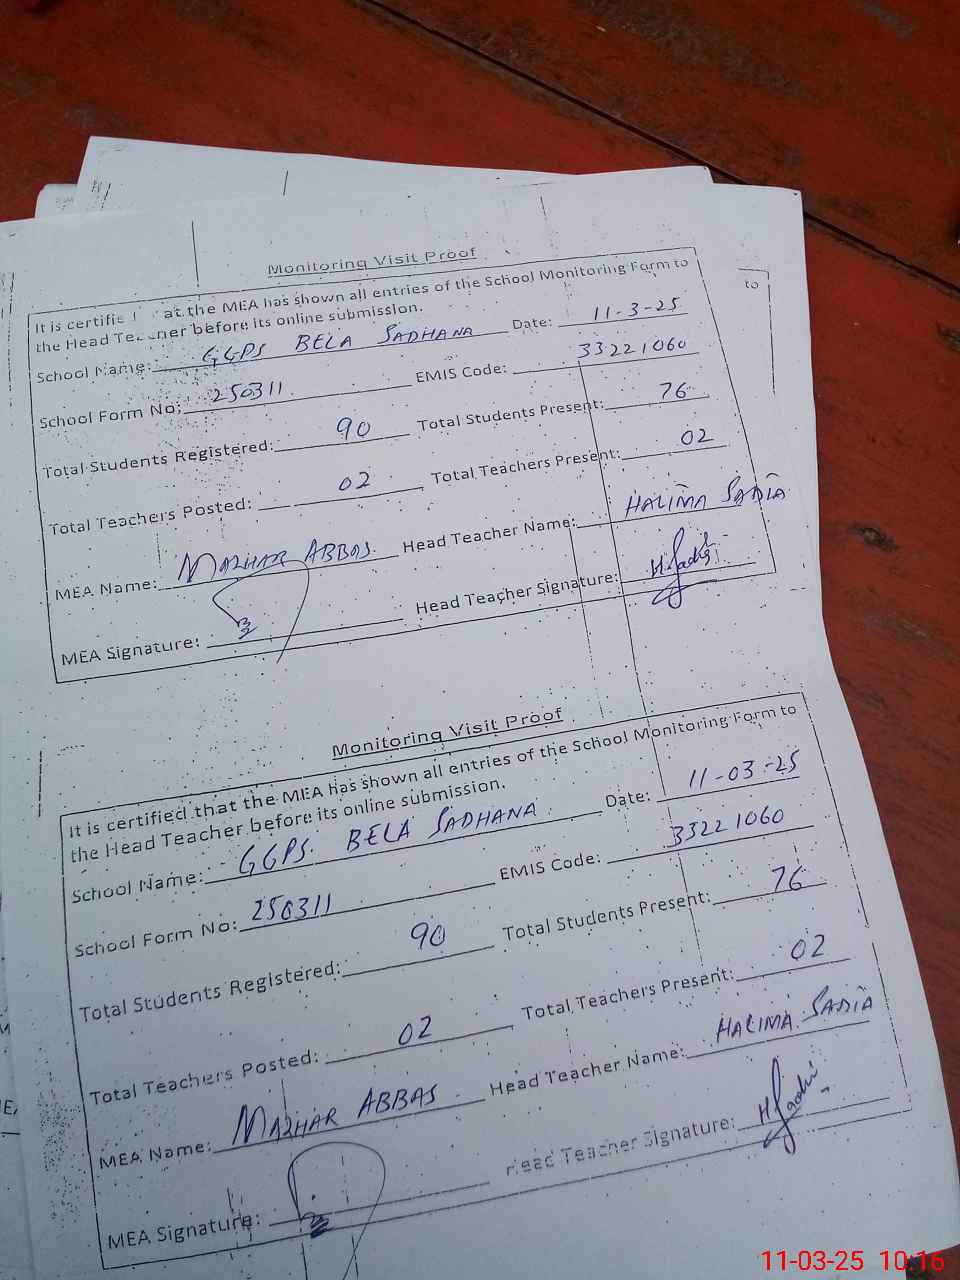 Monitoring Visit Proof
It is certifie at the MEA has shown all entries of the School Monitoring Form to
the Head Teacher before its online submission.
School Name: GGPS BELA SADHANA Date: 11-3-25
School Form No: 250311 EMIS Code: 33221060
Total Students Registered: 90 Total Students Present: 76
Total Teachers Posted: 02 Total Teachers Present: 02
MEA Name: MAZHAR ABBAS. Head Teacher Name: HALIMA SADIA
MEA Signature: Head Teacher Signature: H.Sadia
to
Monitoring Visit Proof
It is certified that the MEA has shown all entries of the School Monitoring Form to
the Head Teacher before its online submission.
School Name: GGPS. BELA SADHANA. Date: 11-03-25
School Form No: 250311 EMIS Code: 33221060
Total Students Registered: 90 Total Students Present: 76
Total Teachers Posted: 02 Total Teachers Present: 02
MEA Name: MAZHAR ABBAS Head Teacher Name: HALIMA SADIA
MEA Signature: Head Teacher Signature: H Sadia
11-03-25 10:16